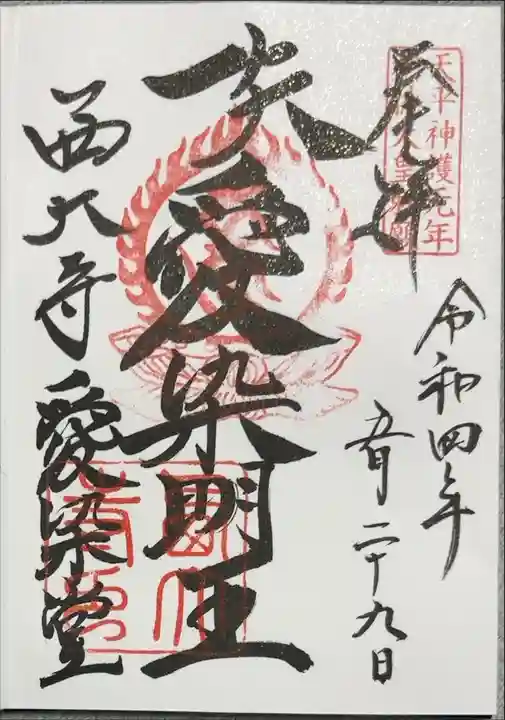 奉拝
天平神護元年
令和四年
五月二十九日
大愛染明王
西大寺 愛染堂